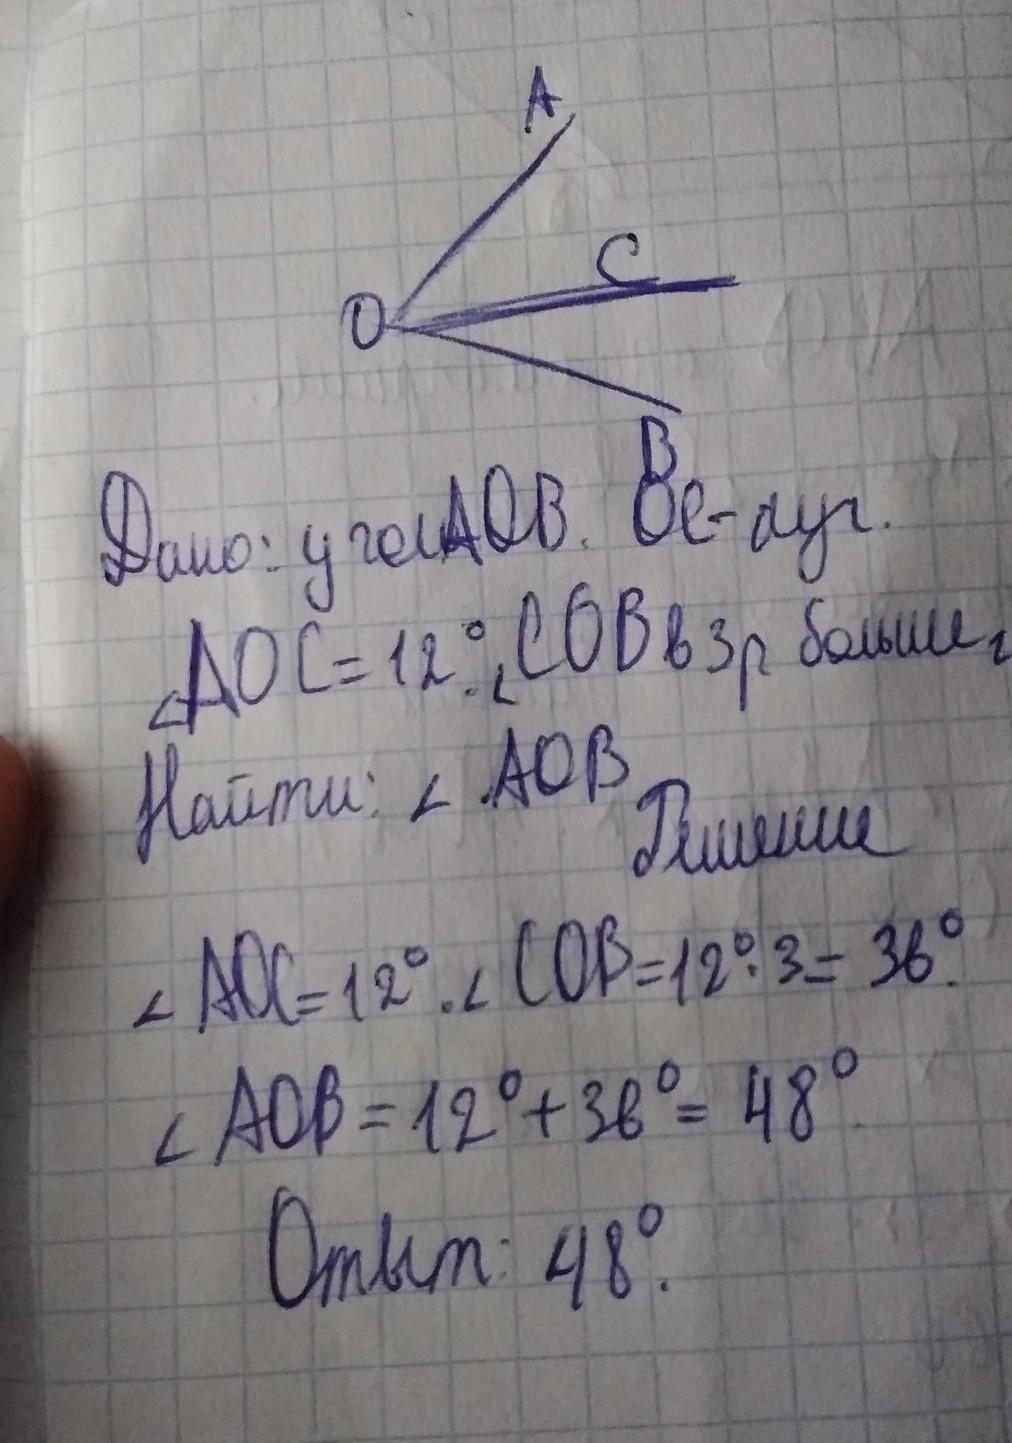 A
C
O
B
Дано: угол AOB. OC-луч.
∠AOC=12°. ∠COB в 3р больше,
Найти: ∠ AOB
Решение
∠ AOC=12°. ∠ COB=12°·3= 36°.
∠ AOB=12°+36°= 48°.
Ответ: 48°.